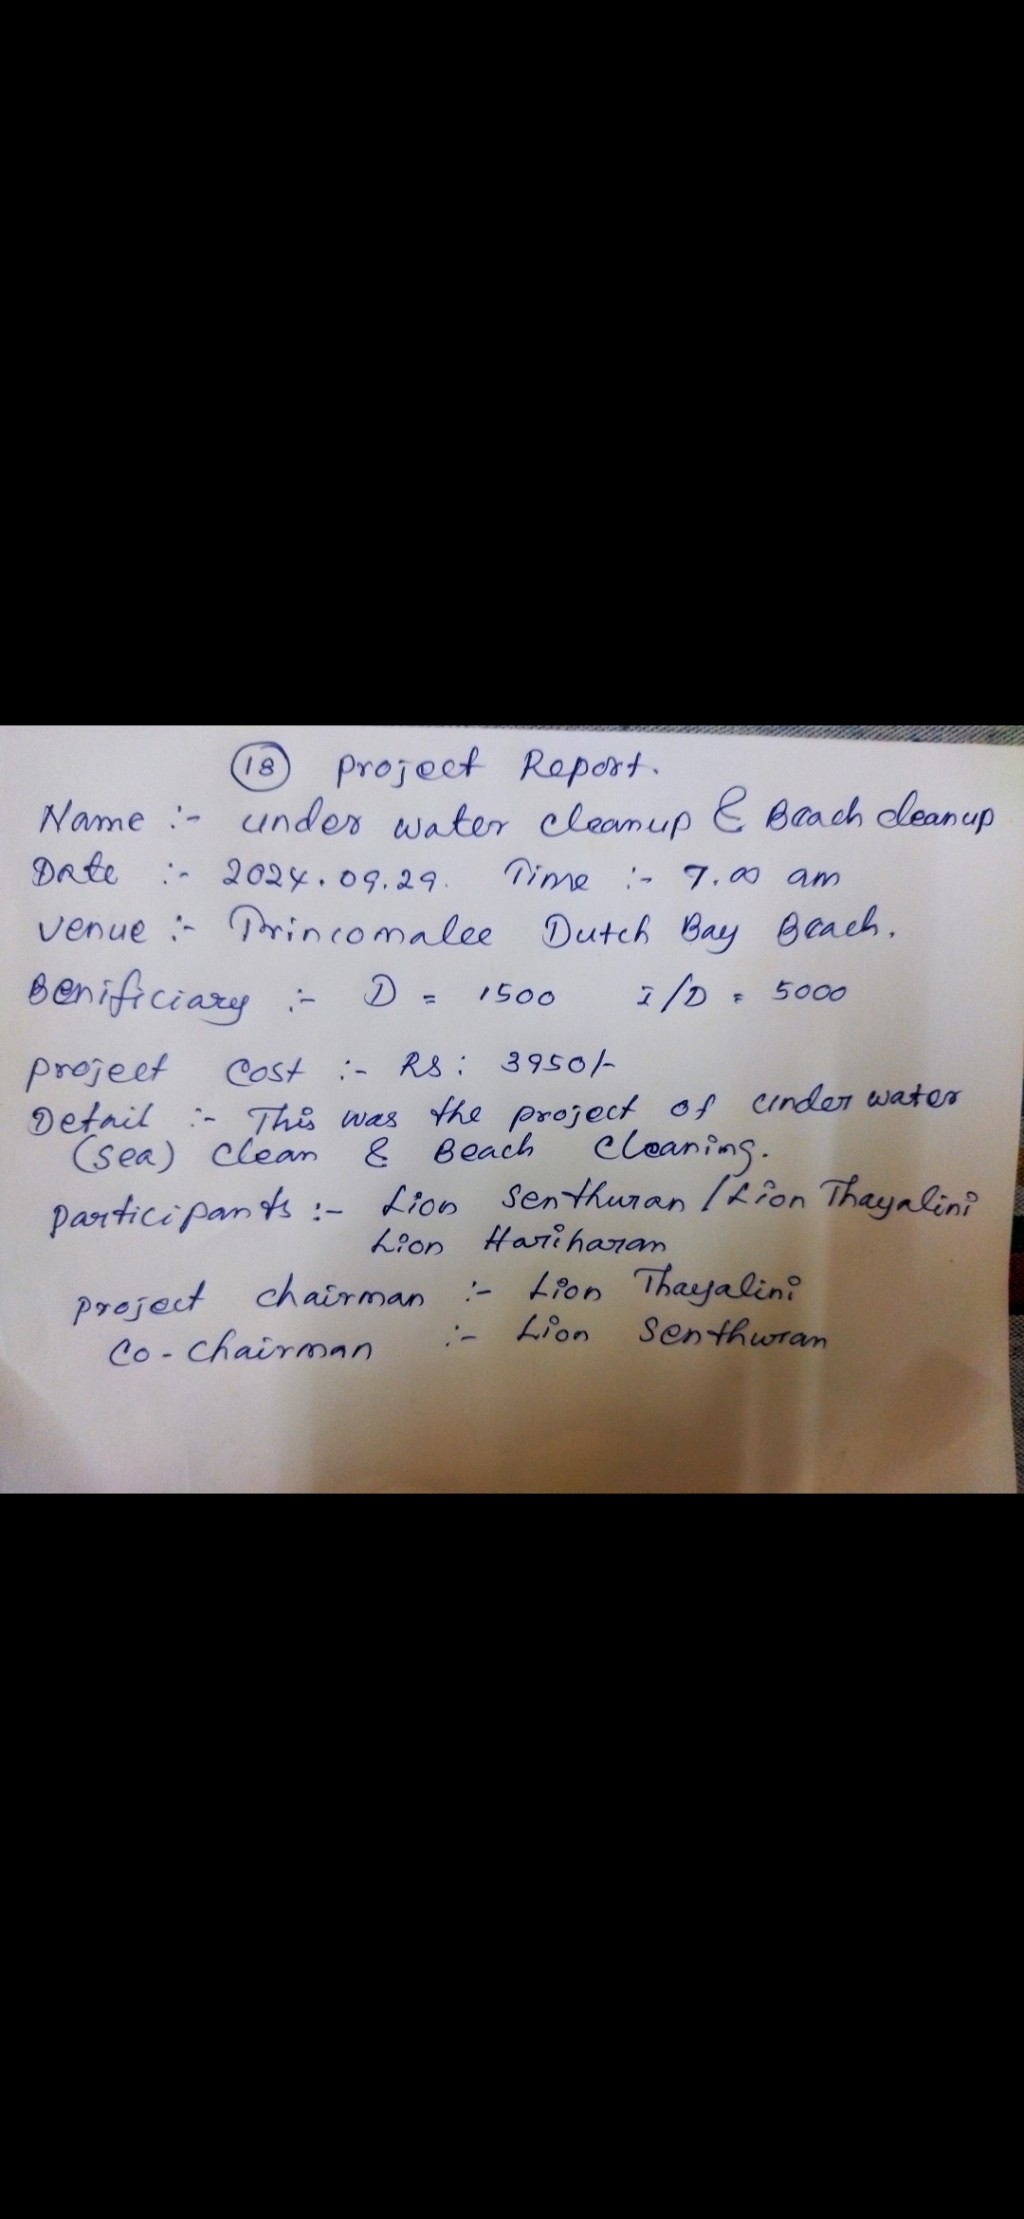 18 Project Report.
Name :- under water cleanup & Beach cleanup
Date :- 2024.09.29. Time :- 7.00 am
Venue :- Trincomalee Dutch Bay Beach.
Benificiary :- D = 1500 I/D = 5000
Project Cost :- RS: 3950/-
Detail :- This was the project of under water
(Sea) Clean & Beach Cleaning.
Participants :- Lion Senthuran / Lion Thayalini
Lion Hariharan
Project chairman :- Lion Thayalini
Co-chairman :- Lion Senthuran